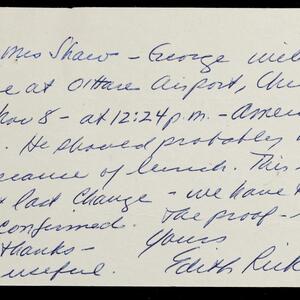 Mrs Shaw - George will
e at O'Hare Airport, Chi
Nov 8 - at 12:24 p.m. - Amer
. He should probably
ecause of lunch. This
+ last change - we have t
confirmed. The proof -
thanks - Yours
useful. Edith Rick